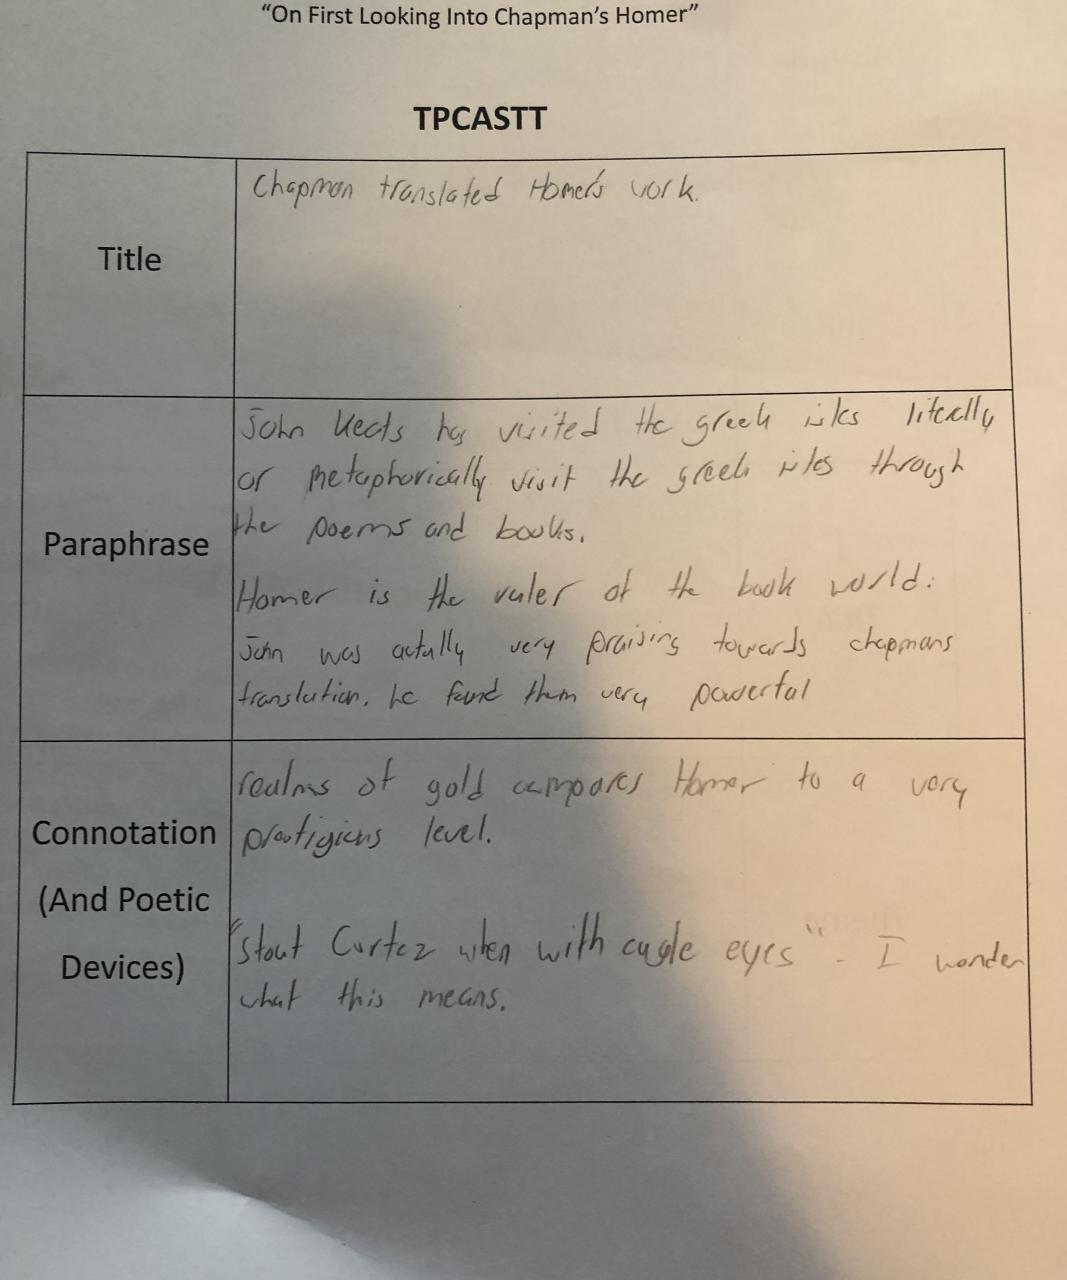 “On First Looking Into Chapman’s Homer”
TPCASTT
Title
Chapman translated Homer's work.
Paraphrase
John Keats has visited the greek isles literally
or metaphorically visit the greek isles through
the poems and books.
Homer is the ruler of the book world.
John was actully very praising towards chapmans
translation. he found them very powerful
Connotation
(And Poetic
Devices)
realms of gold compares Homer to a very
level.
"Stout Cortez when with eagle eyes" - I wonder
what this means.